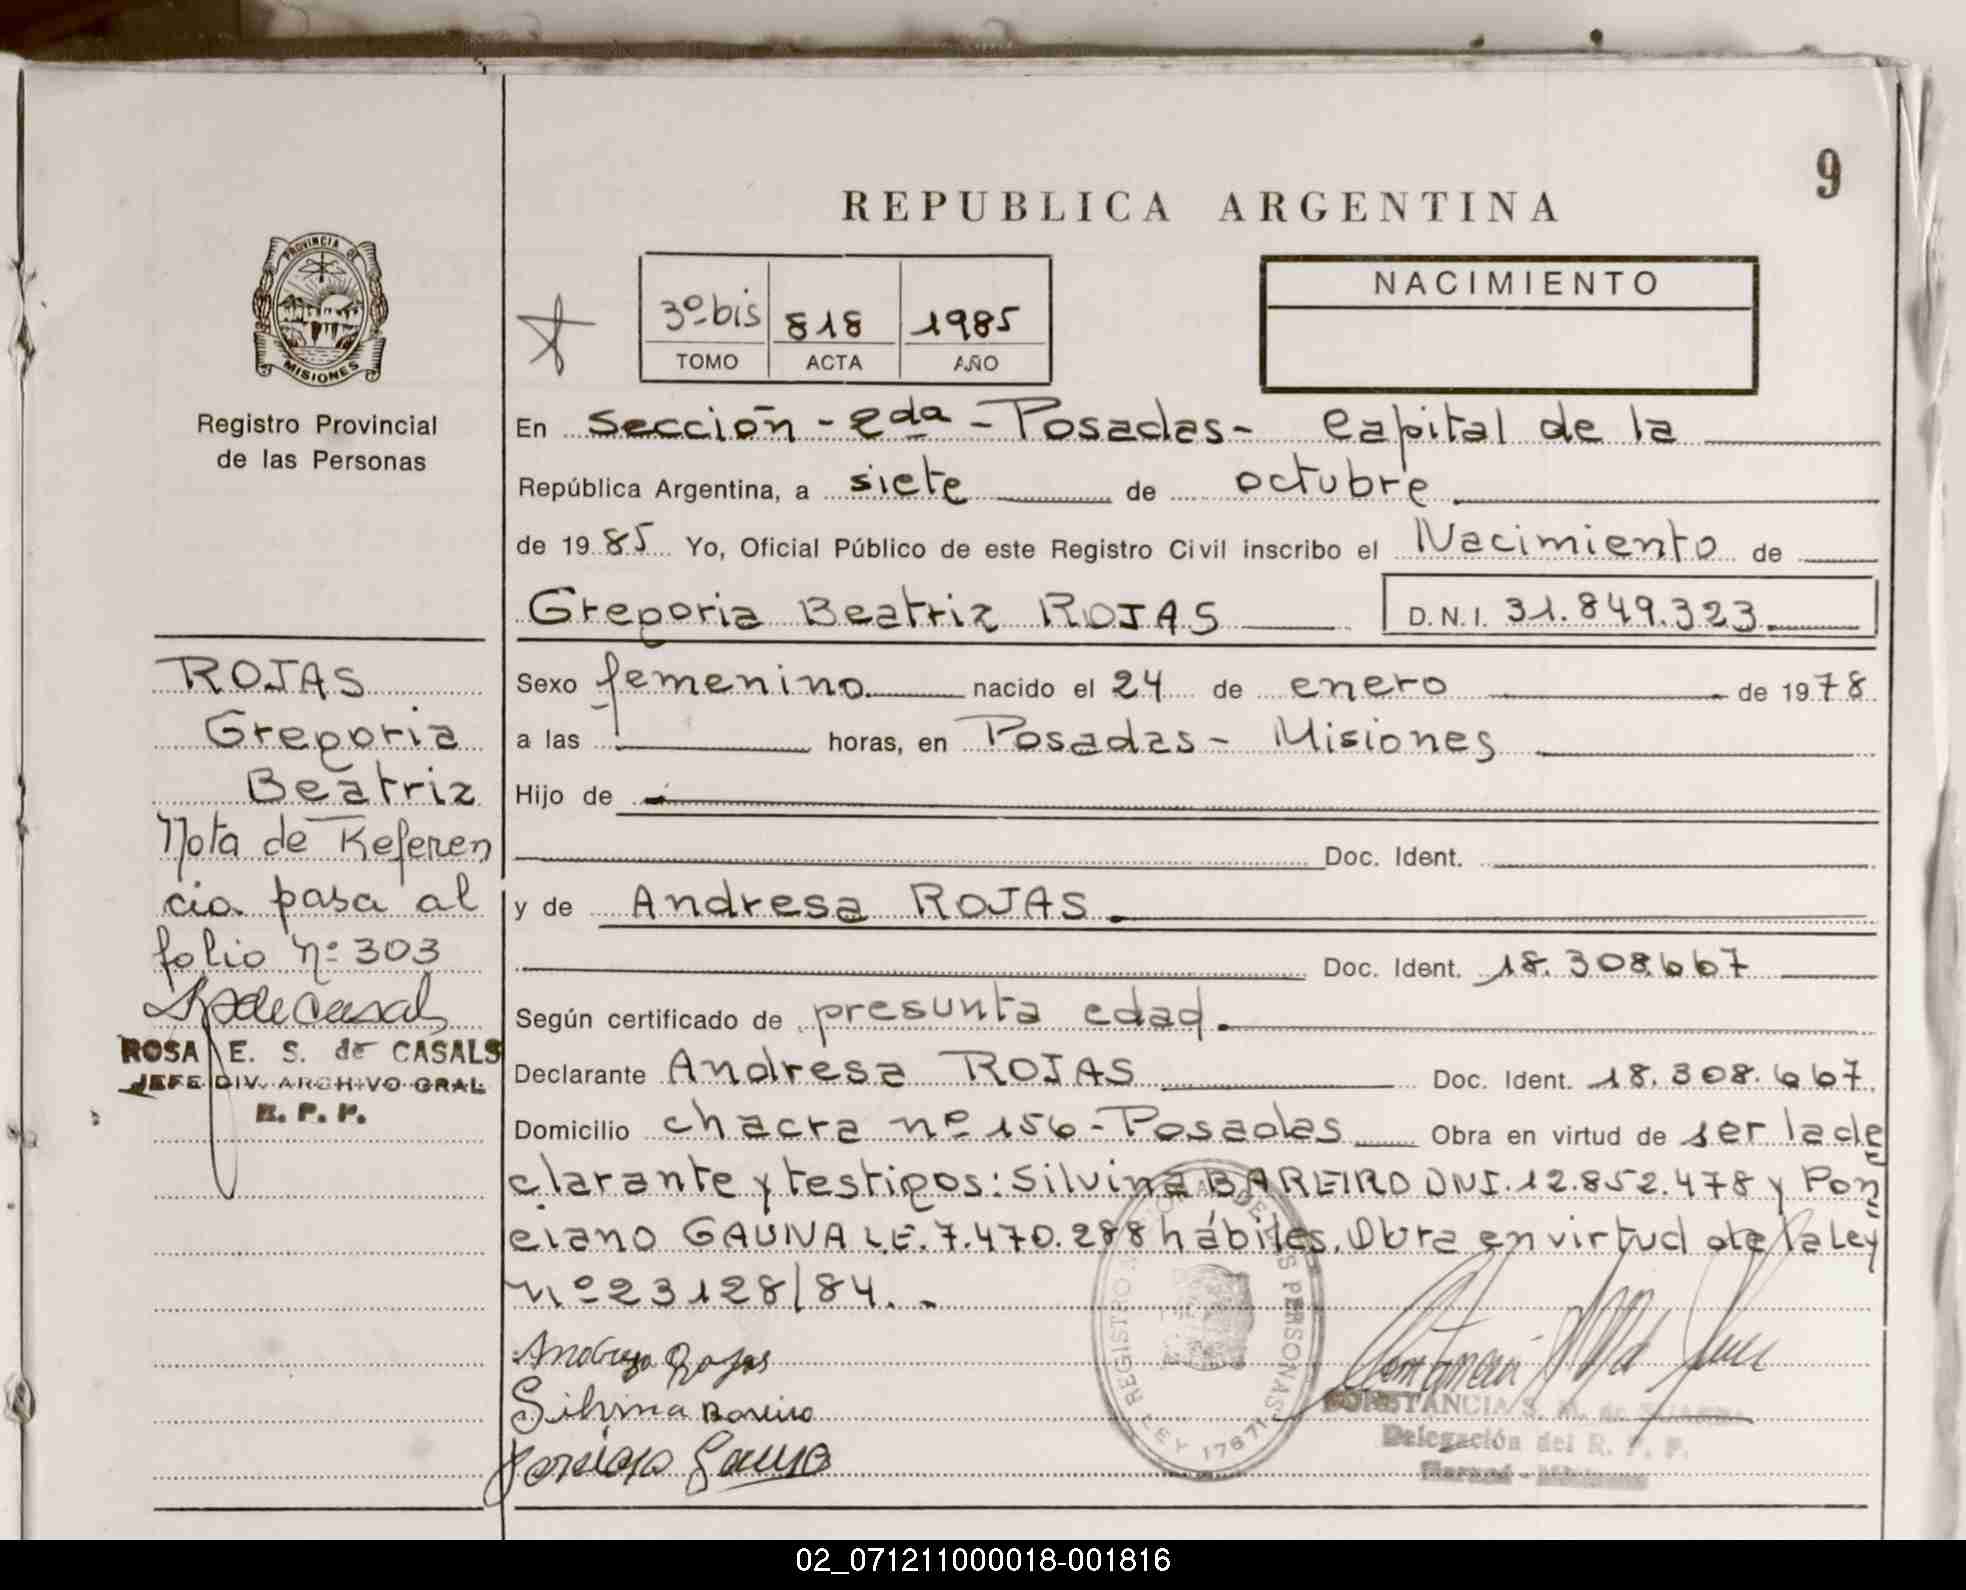 9
REPUBLICA ARGENTINA
PROVINCIA DE
MISIONES
Registro Provincial
de las Personas
3º bis 818 1985
TOMO ACTA AÑO
NACIMIENTO
En Sección - 2da - Posadas - Capital de la
República Argentina, a siete de octubre
de 1985 Yo, Oficial Público de este Registro Civil inscribo el Nacimiento de
Gregoria Beatriz ROJAS D.N.I. 31.849.323
Sexo femenino nacido el 24 de enero de 1978
a las horas, en Posadas - Misiones
Hijo de
Doc. Ident.
y de Andresa ROJAS.
Doc. Ident. 18.308.667
Según certificado de presunta edad.
Declarante Andresa ROJAS Doc. Ident. 18.308.667
Domicilio chacra nº 156 - Posadas Obra en virtud de ser la de
clarante y testigos: Silvina BAREIRO DNI. 12.852.478 y Pon
ciano GAUNA L.E. 7.470.288 hábiles. Obra en virtud de la Ley
nº 23128/84.
Andresa Rojas
Silvina Bareiro
Ponciano Gauna
ROJAS
Gregoria
Beatriz
Nota de Referen
cia pasa al
folio nº 303
ROSA E. S. de CASALS
JEFE DIV. ARCHIVO GRAL
R. P. P.
REGISTRO NACIONAL DE LAS PERSONAS
LEY 17671
CONSTANCIA S. M. de
Delegación del R. P. P.
02_071211000018-001816